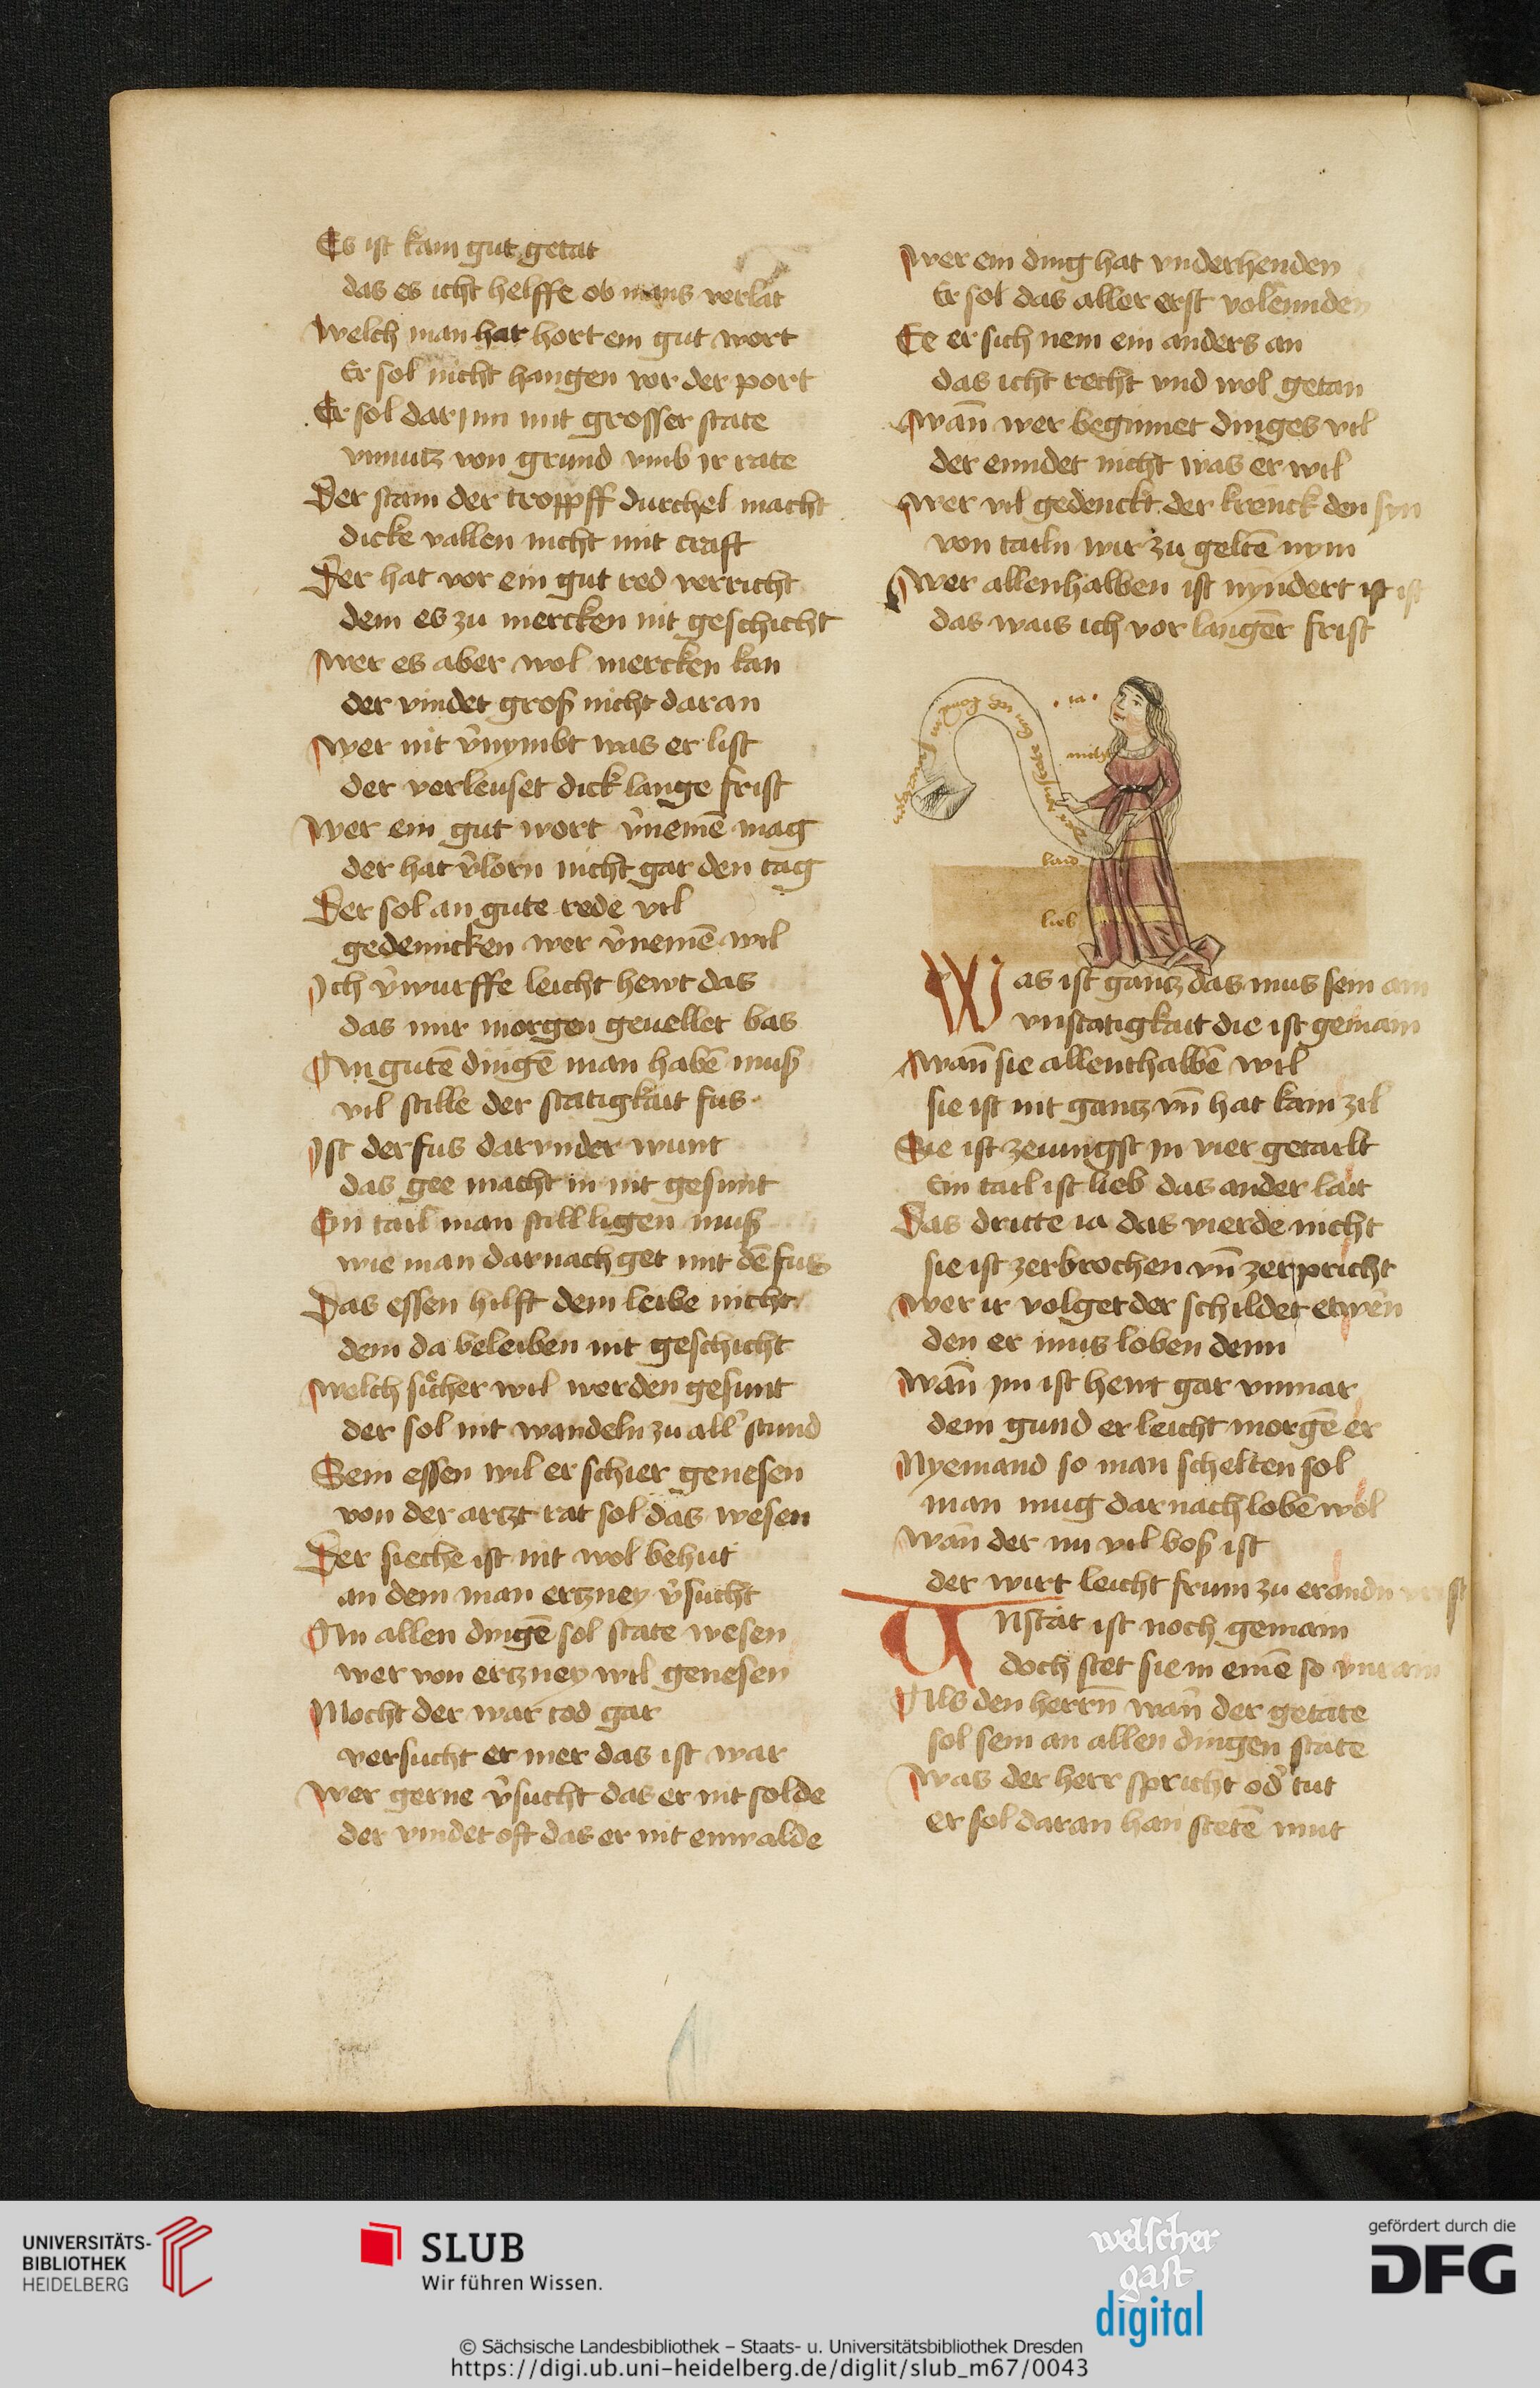 Es ist kain gut getat
das es icht helffe ob mans verlat
Welch man hat hort ein gut wort
Er sol nicht hangen vor der port
Er sol darjnn mit grosser state
vnnutz von grund vmb ir rate
Der stain der troppff durchel macht
dicke vallen nicht mit craft
Der hat vor ein gut red verricht
dem es zu mercken nit geschicht
Wer es aber wol mercken kan
der vindet groß nicht daran
Wer nit v̾nymbt was er list
der verleuset dick lange frist
Wer ein gut wort v̾nemē mag
der hat v̾lorn nicht gar den tag
Der sol an gute rede vil
gedenncken wer v̾nemē wil
Ich v̾wurffe leicht hewt das
das mir morgen geuellet bas
An gutē dingē man habē muß
vil stille der statigkait fus
Ist der fus darvnder wunt
das gee macht in nit gesunt
On tail man still ligen muß
wie man darnach get mit dē fus
Das essen hilft dem leibe nicht
dem da beleiben nit geschicht
Welch sucher wil werden gesunt
der sol nit wandeln zu all̾ stund
Sein essen wil er schier genesen
von der artzt rat sol das wesen
Der sieche ist nit wol behut
an dem man ertzney v̾sucht
An allen dingē sol state wesen
wer von ertzney wil genesen
Mocht der war tod gar
versucht er mer das ist war
Wer gerne v̾sucht das er nit solde
der vindet oft das er nit enwalde
Wer ein ding hat vnderhenden
Er sol das aller erst volennden
Ee er sich nem ein anders an
das icht recht vnd wol getan
Wañ wer beginnet dinges vil
der enndet nicht was er wil
Wer vil gedenckt der krenck den syn
von tailn wir zu geltē nym
Wer allenhalben ist nyndert ist ist
das wais ich vor langer frist
ia
nicht
laid
lieb
Was ist gantz das mus sein ain
vnstatigkait die ist gemain
Wañ sie allenthalbē wil
sie ist nit gantz vñ hat kain zil
Sie ist zeuingst jn vier getailt
Ein tail ist lieb das ander lait
Das dritte ia das vierde nicht
sie ist zerbrochen vñ zerpricht
Wer ir volget der schildet etwen
den er mus loben denn
Wañ jm ist hewt gar vnmar
dem gund er leicht morgē er
Nyemand so man schelten sol
man mug darnach lobē wol
Wañ der nu vil boß ist
der wirt leicht frum zu erandn vrist
Vnstat ist noch gemain
doch stet sie in einē so vnrain
Als den herrn̄ wañ der getate
sol sein an allen dingen state
Was der herr spricht od̾ tut
er sol daran han stetē mut
UNIVERSITÄTS-
BIBLIOTHEK
HEIDELBERG
SLUB
Wir führen Wissen.
welscher
gast
digital
gefördert durch die
DFG
© Sächsische Landesbibliothek – Staats- u. Universitätsbibliothek Dresden
https://digi.ub.uni-heidelberg.de/diglit/slub_m67/0043